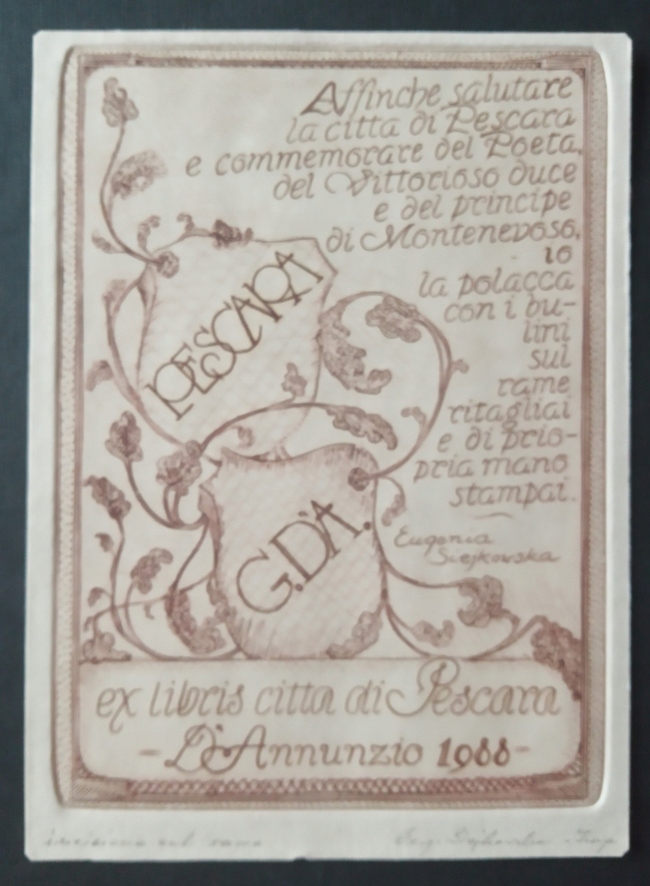 Affinche salutare
la citta di Pescara
e commemorare del Poeta,
del Vittorioso duce
e del principe
di Montenevoso,
io
la polacca
con i bu-
lini
sul
rame
ritagliai
e di prio-
pria mano
stampai.
Eugenia
Siejkowska
PESCARA
G.D'A.
ex libris citta di Pescara
- D'Annunzio 1988 -
incisione sul rame